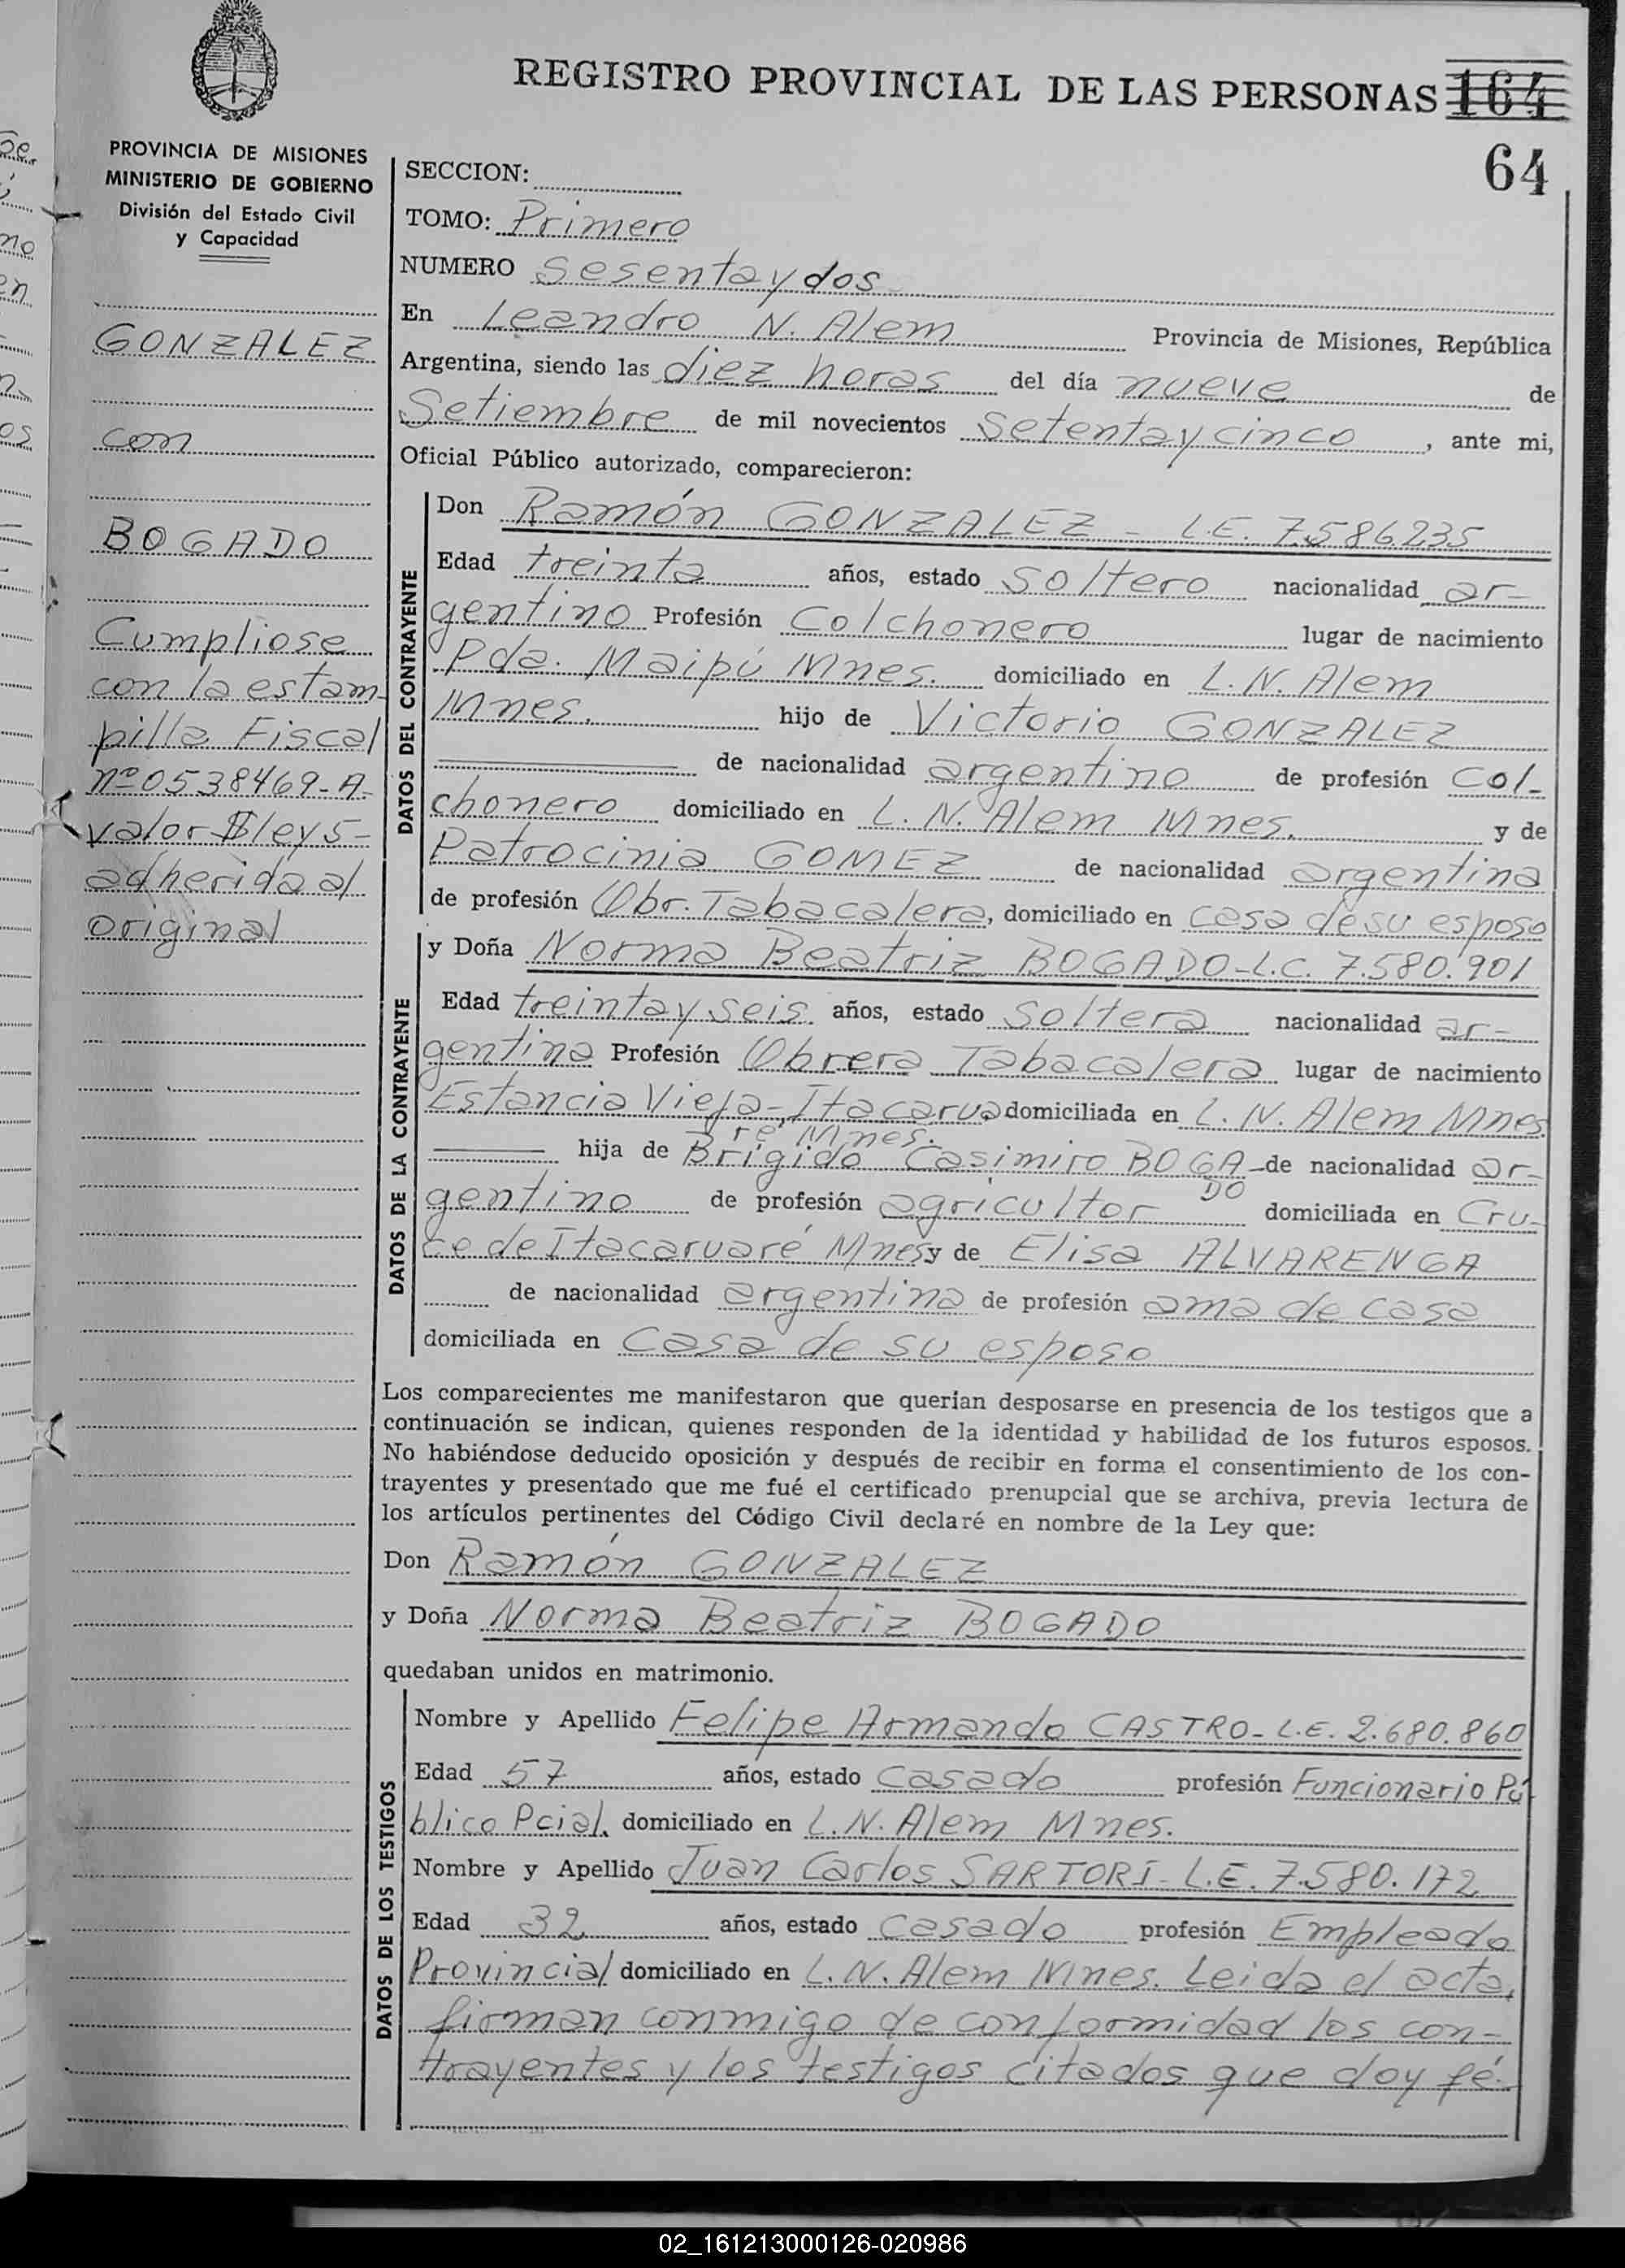 REGISTRO PROVINCIAL DE LAS PERSONAS 164
64
PROVINCIA DE MISIONES
MINISTERIO DE GOBIERNO
División del Estado Civil
y Capacidad
GONZALEZ
con
BOGADO
Cumpliose
con la estam-
pilla Fiscal
nº 0538469-A-
valor $ ley 5-
adherida al
original
SECCION:
TOMO: Primero
NUMERO Sesenta y dos
En Leandro N. Alem Provincia de Misiones, República
Argentina, siendo las diez horas del día nueve de
Setiembre de mil novecientos Setenta y cinco, ante mi,
Oficial Público autorizado, comparecieron:
DATOS DEL CONTRAYENTE
Don Ramón GONZALEZ - L.E. 7.586.235
Edad treinta años, estado soltero nacionalidad ar-
gentino Profesión Colchonero lugar de nacimiento
Pda. Maipú Mnes. domiciliado en L.N. Alem
Mnes. hijo de Victorio GONZALEZ
de nacionalidad argentino de profesión Col-
chonero domiciliado en L. N. Alem Mnes. y de
Patrocinia GOMEZ de nacionalidad argentina
de profesión Obr. Tabacalera, domiciliado en casa de su esposo
DATOS DE LA CONTRAYENTE
y Doña Norma Beatriz BOGADO - L.C. 7.580.901
Edad treinta y seis años, estado Soltera nacionalidad ar-
gentina Profesión Obrera Tabacalera lugar de nacimiento
Estancia Vieja - Itacarua domiciliada en L. N. Alem Mnes
ré, Mnes.
hija de Brígido Casimiro BOGA- de nacionalidad ar-
DO
gentino de profesión agricultor domiciliada en Cru-
ce de Itacaruaré Mnes y de Elisa ALVARENGA
de nacionalidad argentina de profesión ama de casa
domiciliada en Casa de su esposo
Los comparecientes me manifestaron que querían desposarse en presencia de los testigos que a
continuación se indican, quienes responden de la identidad y habilidad de los futuros esposos.
No habiéndose deducido oposición y después de recibir en forma el consentimiento de los con-
trayentes y presentado que me fué el certificado prenupcial que se archiva, previa lectura de
los artículos pertinentes del Código Civil declaré en nombre de la Ley que:
Don Ramón GONZALEZ
y Doña Norma Beatriz BOGADO
quedaban unidos en matrimonio.
DATOS DE LOS TESTIGOS
Nombre y Apellido Felipe Armando CASTRO - L.E. 2.680.860
Edad 57 años, estado Casado profesión Funcionario Pú
blico Pcial. domiciliado en L.N. Alem Mnes.
Nombre y Apellido Juan Carlos SARTORI - L.E. 7.580.172
Edad 32 años, estado casado profesión Empleado
Provincial domiciliado en L.N. Alem Mnes. Leida el acta,
firman conmigo de conformidad los con-
trayentes y los testigos citados que doy fé.
02_161213000126-020986